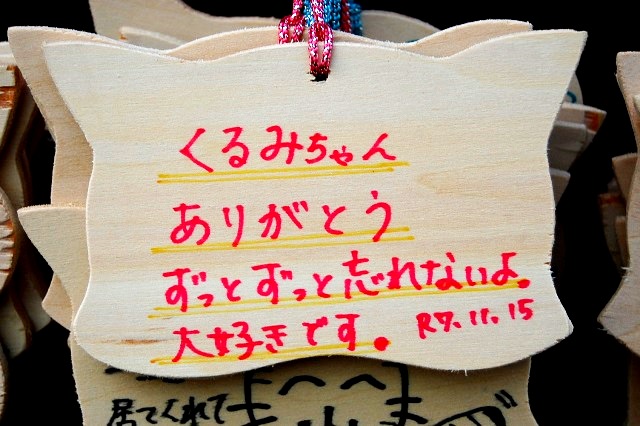 くるみちゃん
ありがとう
ずっとずっと忘れないよ。
大好きです。 R7.11.15
居てくれて